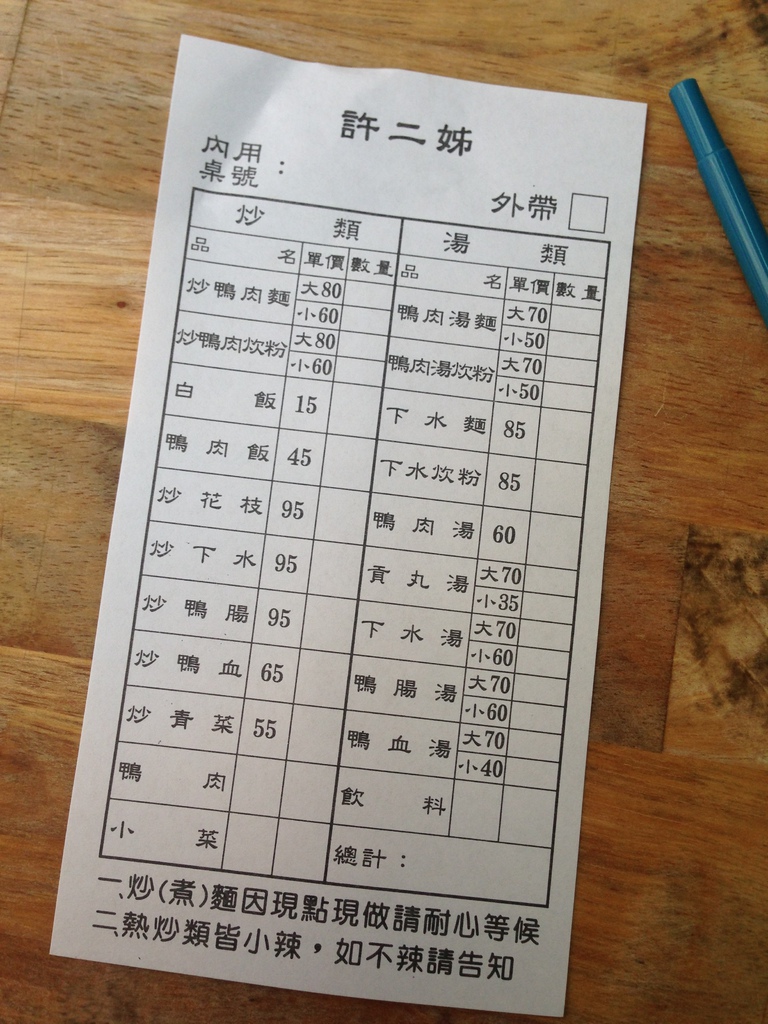 許二姊
內用
桌號：
外帶
炒類
品名 單價 數量
炒鴨肉麵 大80
小60
炒鴨肉炊粉 大80
小60
白飯 15
鴨肉飯 45
炒花枝 95
炒下水 95
炒鴨腸 95
炒鴨血 65
炒青菜 55
鴨肉
小菜
湯類
品名 單價 數量
鴨肉湯麵 大70
小50
鴨肉湯炊粉 大70
小50
下水麵 85
下水炊粉 85
鴨肉湯 60
貢丸湯 大70
小35
下水湯 大70
小60
鴨腸湯 大70
小60
鴨血湯 大70
小40
飲料
總計：
一、炒(煮)麵因現點現做請耐心等候
二、熱炒類皆小辣，如不辣請告知